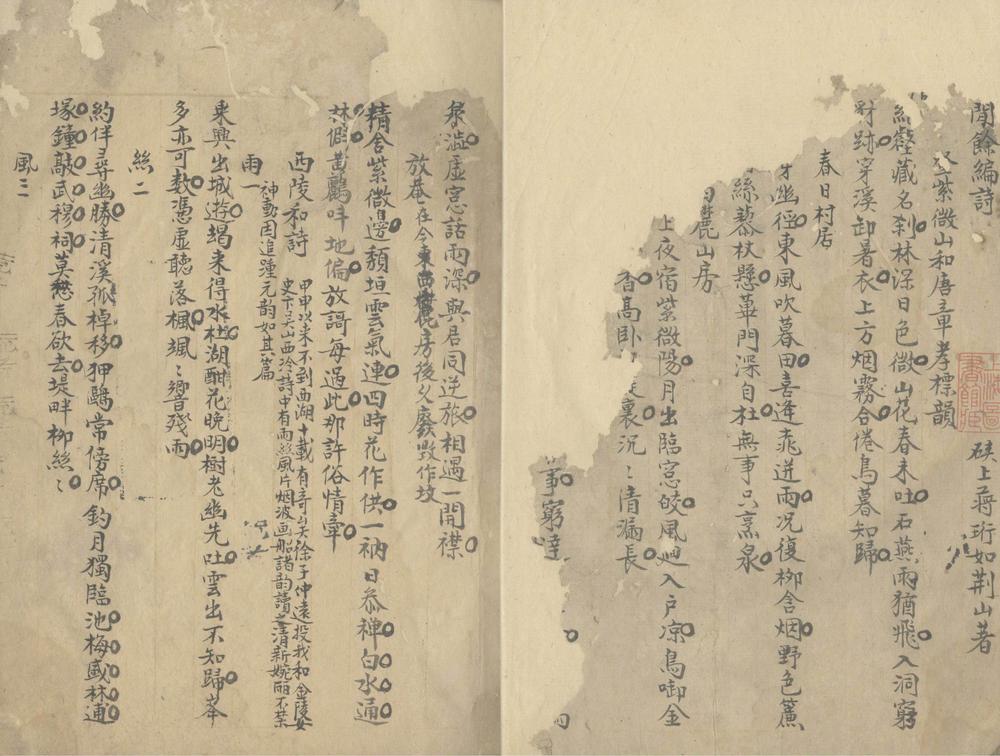 閒餘編詩
硤上蔣珩如荆山著
登紫微山和唐章孝標韻
絲藏名刹林深日色微山花春未吐石燕雨猶飛入洞窮
跡穿溪卸暑衣上方烟霧合倦鳥暮知歸
春日村居
幽徑東風吹暮田喜逢乖迸雨况復柳含烟野色簾
絲藜杖懸蓽門深自杜無事只烹泉
麓山房
上夜宿紫微陽月出臨窓皎風廻入戶凉鳥啣金
香高卧裏沉〻清漏長
窮達
泉澁虛窓話雨深與居同逆旅相遇一開襟
放菴在今東麓房後久廢毀作坟
精舍紫微邊頽垣雲氣連四時花作供一衲日叅禅白水通
林偎黄鸝哶地偏放謌每過此那許俗情牽
西陵和詩
甲申以来不到西湖十載有竒矣徐子仲遠投我和金陵女
史卞吴山西泠詩中有雨絲風片烟波画船諸韵讀之清新婉丽不禁
神動因追踵元韵如其篇
雨一
乘興出城遊朅来得水杜湖酣花晚明樹老幽先吐雲出不知歸峯
多亦可数憑虛聽落楓颯〻響殘雨
絲二
約伴尋幽勝清溪孤棹移狎鷗常傍席釣月獨臨池梅盛林逋
塚鐘敲武穆祠莫愁春欲去堤畔柳絲〻
風三